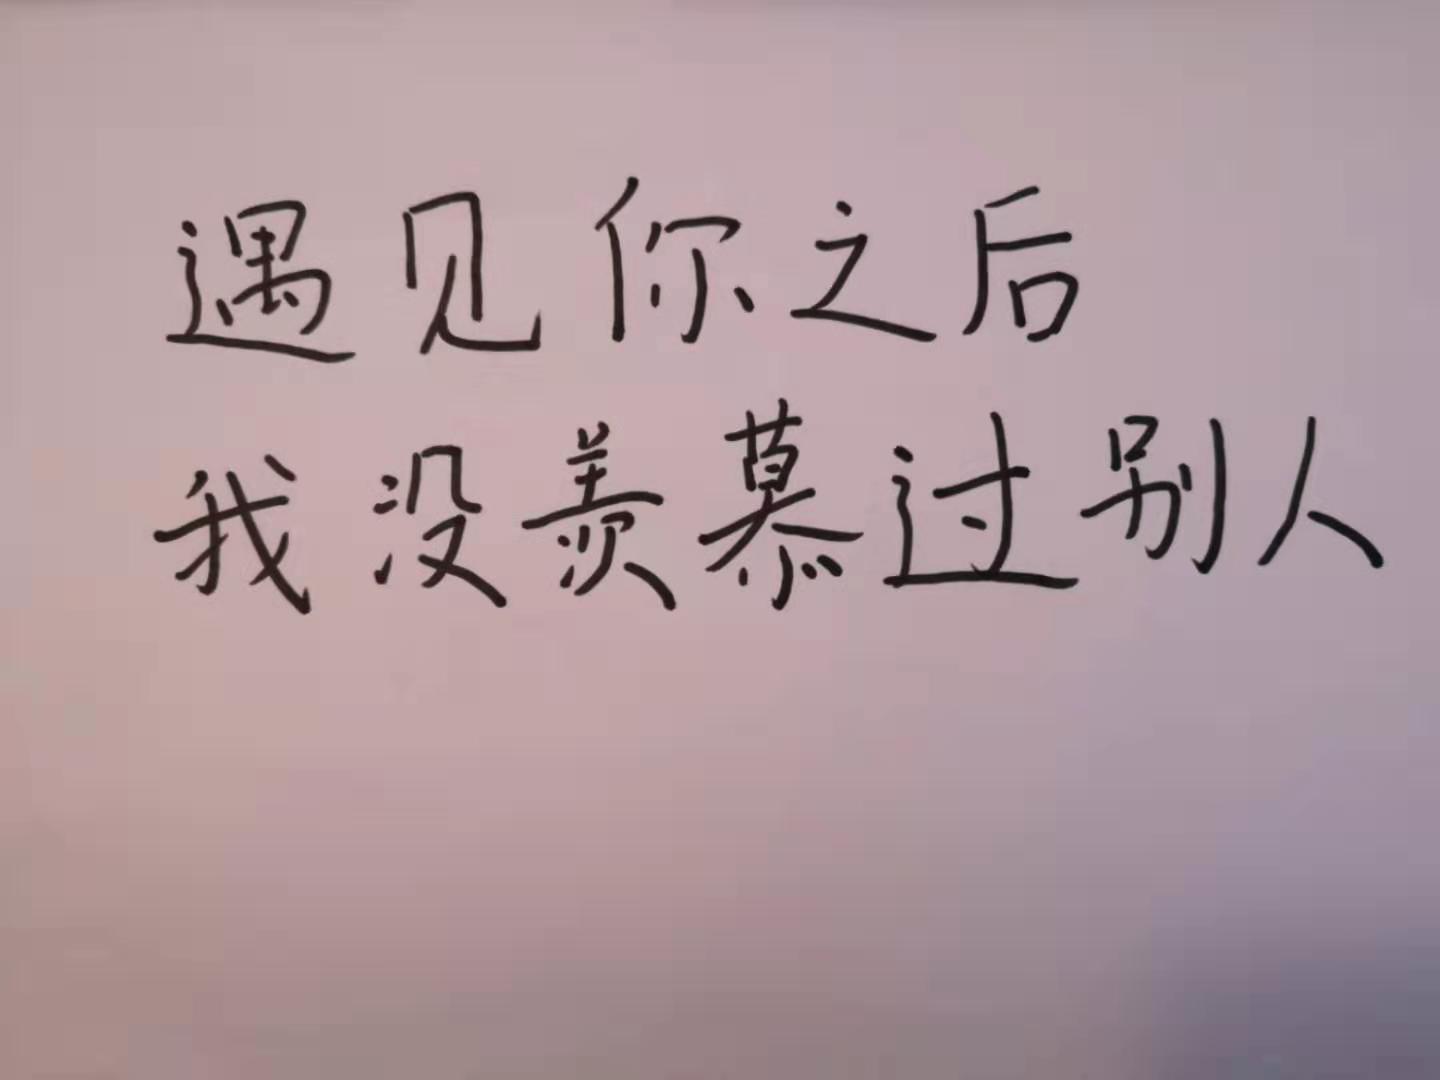 遇见你之后
我没羡慕过别人